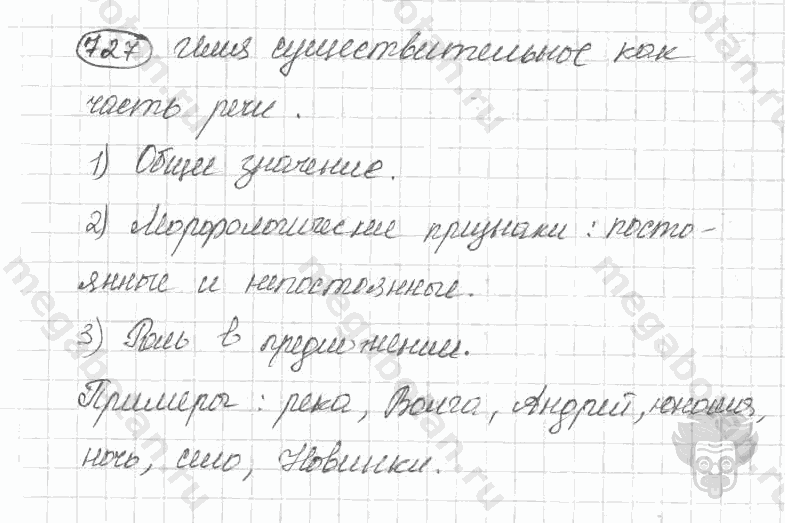 727 Имя существительное как
часть речи.
1) Общее значение.
2) Морфологические признаки: посто-
янные и непостоянные.
3) Роль в предложении.
Примеры: река, Волга, Андрей, юноша,
ночь, село, Новинки.
megabotan.ru